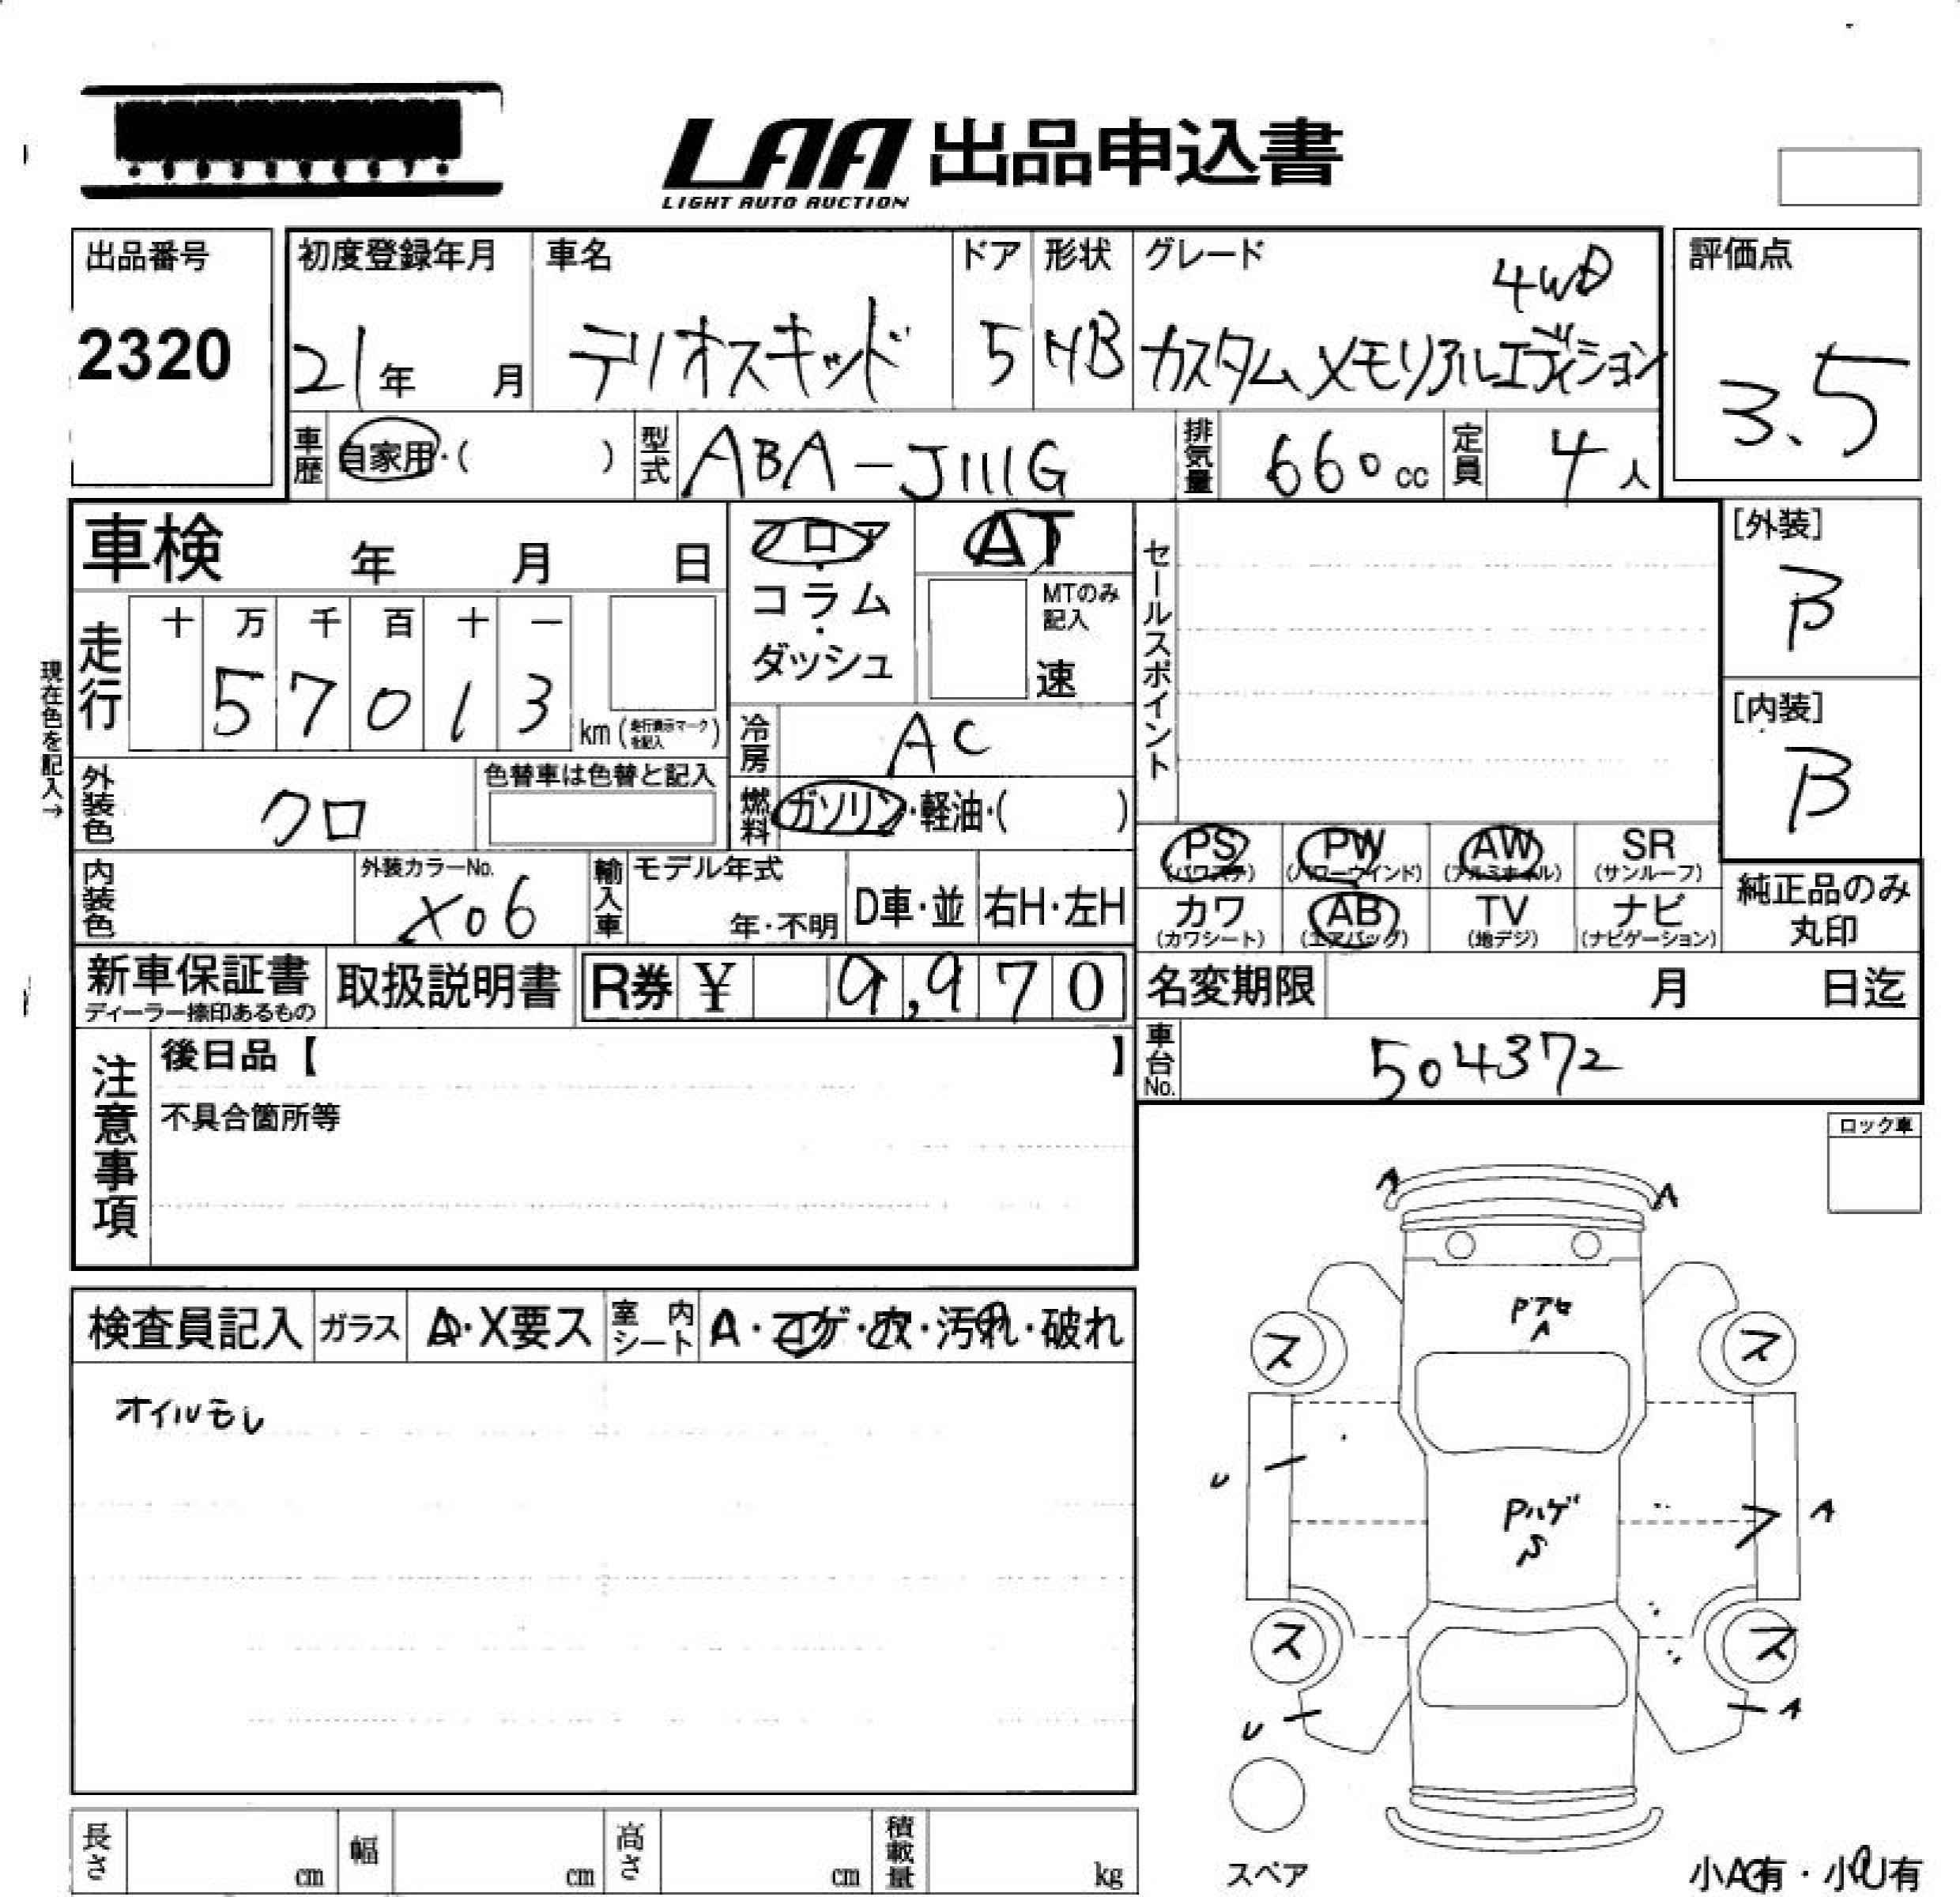 LAA 出品申込書
LIGHT AUTO AUCTION
出品番号
2320
初度登録年月
21年 月
車名
テリオスキッド
ドア
5
形状
HB
グレード
4WD
カスタムメモリアルエディション
評価点
3.5
車歴
自家用・( )
型式
ABA-J111G
排気量
660cc
定員
4人
車検 年 月 日
フロア
・
コラム
・
ダッシュ
AT
MTのみ
記入
速
セールスポイント
[外装]
B
[内装]
B
現在色を記入→
走行
十 万 千 百 十 一
5 7 0 1 3
km (走行表示マークを記入)
冷房
AC
外装色
クロ
色替車は色替と記入
燃料
ガソリン・軽油・( )
PS
(パワステ)
PW
(パワーウインド)
AW
(アルミホイル)
SR
(サンルーフ)
カワ
(カワシート)
AB
(エアバッグ)
TV
(地デジ)
ナビ
(ナビゲーション)
純正品のみ
丸印
内装色
外装カラーNo.
X06
輸入車
モデル年式
年・不明
D車・並
右H・左H
新車保証書
ディーラー捺印あるもの
取扱説明書
R券 ¥ 9,970
名変期限 月 日迄
車台No.
504372
注意事項
後日品【 】
不具合箇所等
ロック車
検査員記入
ガラス
A・X要ス
室内シート
A・コゲ・穴・汚れ・破れ
オイルモレ
A
A
Pアセ
A
ス
ス
U
Pハゲ
S
A
ス
ス
U
A
スペア
小A有・小U有
長さ cm
幅 cm
高さ cm
積載量 kg